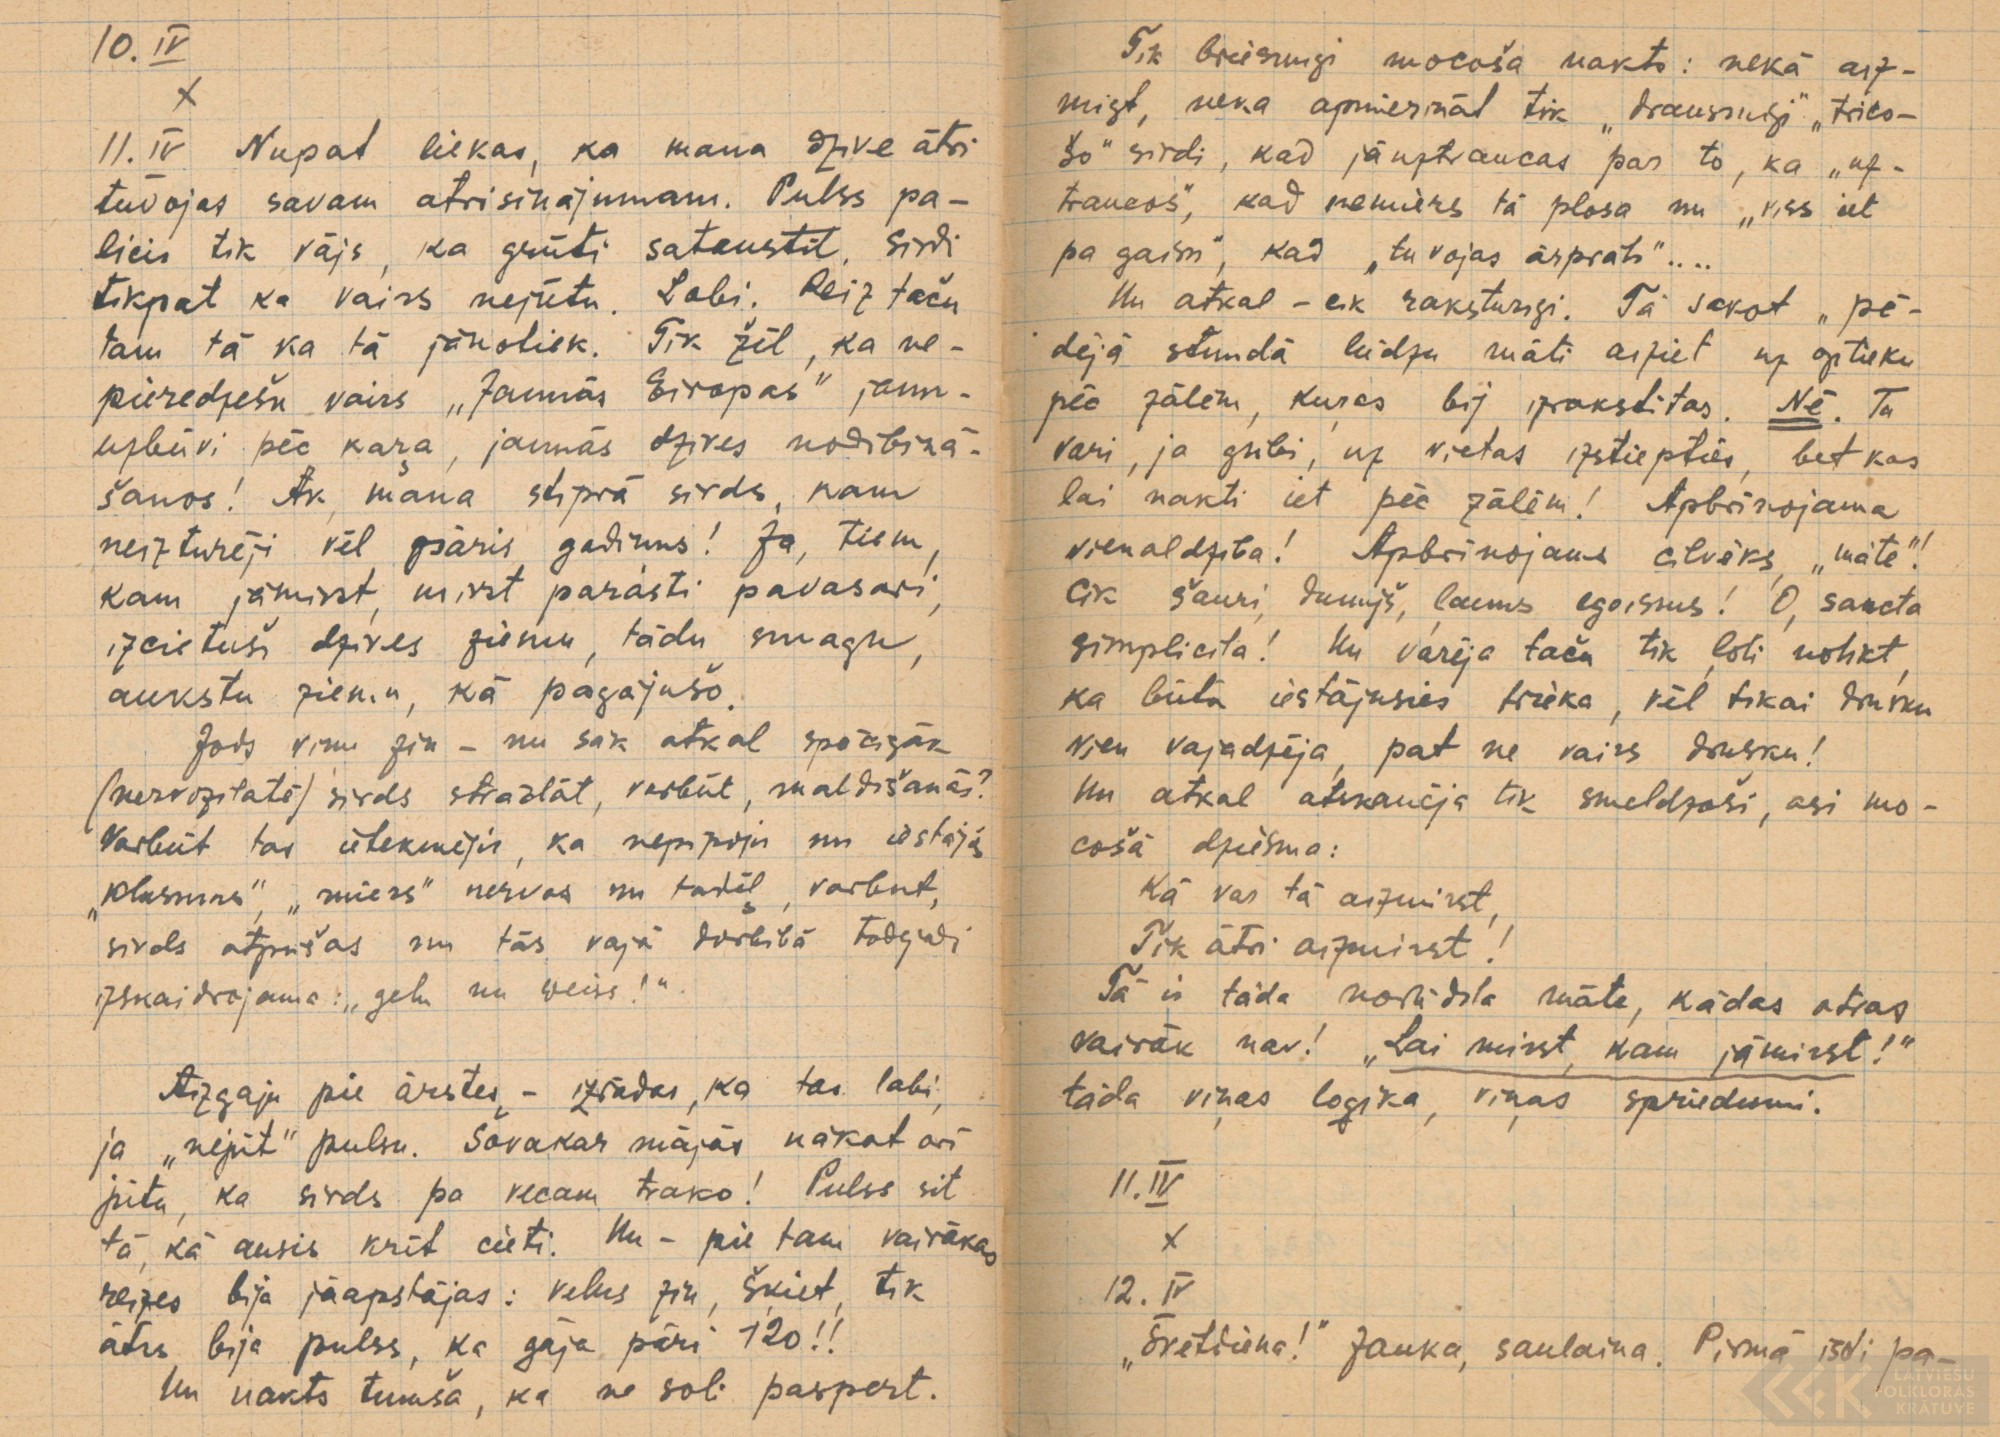 10. IV
x
11. IV Nupat liekas, ka mana dzīve ātri
tuvojas savam atrisinājumam. Pulss pa-
licis tik vājs, ka grūti sataustīt, sirdi
tikpat kā vairs nejūtu. Labi. Reiz taču
tam tā kā tā jānotiek. Tik žēl, ka ne-
pieredzēšu vairs „Jaunās Eiropas" jaun-
uzbūvi pēc kaŗa, jaunās dzīves nodibinā-
šanos! Ak, mana stiprā sirds, kam
neizturēji vēl pāris gadiņus! Ja, tiem,
kam jāmirst, mirst parasti pavasarī,
izcietuši dzīves ziemu, tādu smagu,
aukstu ziemu, kā pagājušo.
Jods viņu zin – nu sāk atkal spēcīgāk
(nervozitātē) sirds strādāt, varbūt, maldīšanās?
Varbūt tas ietekmējis, ka nepīpoju un iestājās
„miers" nervos un tādēļ, varbūt,
sirds atpūšas un tās vājā darbība tādejādi
izskaidrojama: „
Aizgāju pie ārstes, – izrādas, ka tas labi,
ja „nejūt" pulsu. Šovakar mājās nākot arī
jūtu, ka sirds pa vecam trako! Pulss sit
tā, kā ausis krīt cieti. Nu – pie tam vairākas
reizes bija jāapstājas: velns zin, šķiet, tik
ātrs bija pulss, ka gāja pāri 120!!
Un nakts tumša, ka ne soli paspert.
Tik briesmīgi mocoša nakts: nekā aiz-
migt, nekā apmierināt tik „drausmīgi" „trico-
šo" sirdi, kad jāuztraucas par to, ka „uz-
traucos", kad nemiers tā plosa un „viss iet
pa gaisu", kad „tuvojas ārprāts"....
Un atkal – cik raksturīgi. Tā sakot „pē-
dējā stundā lūdzu māti aiziet uz aptieku
pēc zālēm, kuŗas bij izrakstītas. Nē. Tu
vari, ja gribi, uz vietas izstiepties, bet kas
lai naktī iet pēc zālēm! Apbrīnojama
vienaldzība! Apbrīnojams cilvēks, „māte"!
Cik šauri, dumjš, ļauns egoisms! O, sancta
simplicita! Nu varēja taču tik ļoti notikt,
ka būtu iestājusies trieka, vēl tikai drusku
vien vajadzēja, pat ne vairs drusku!
Un atkal atskanēja tik smeldzoši, asi mo-
cošā dziesma:
Kā var tā aizmirst,
Tik ātri aizmirst!
Tā ir tāda māte, kādas otras
vairāk nav! „Lai mirst, kam jāmirst!"
tāda viņas loģika, viņas spriedumi.
11. IV
x
12. IV
„Svētdiena!" Jauka, saulaina. Pirmā īsti pa-
LATVIEŠU
FOLKLORAS
KRĀTUVE